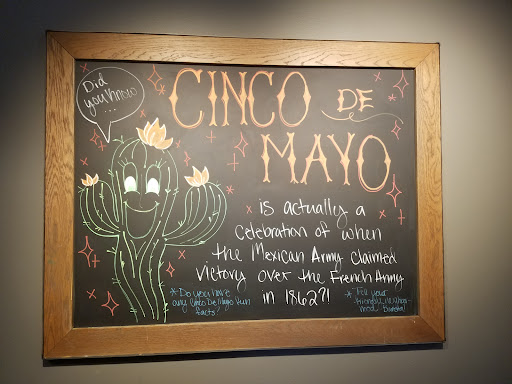 Did
you know
...
CINCO
DE
MAYO
is actually a
celebration of when
the Mexican Army claimed
victory over the French Army
in 1862?!
*Do you have
any Cinco De Mayo Fun
facts
*Tell your
friendly neighbor-
hood Barista!